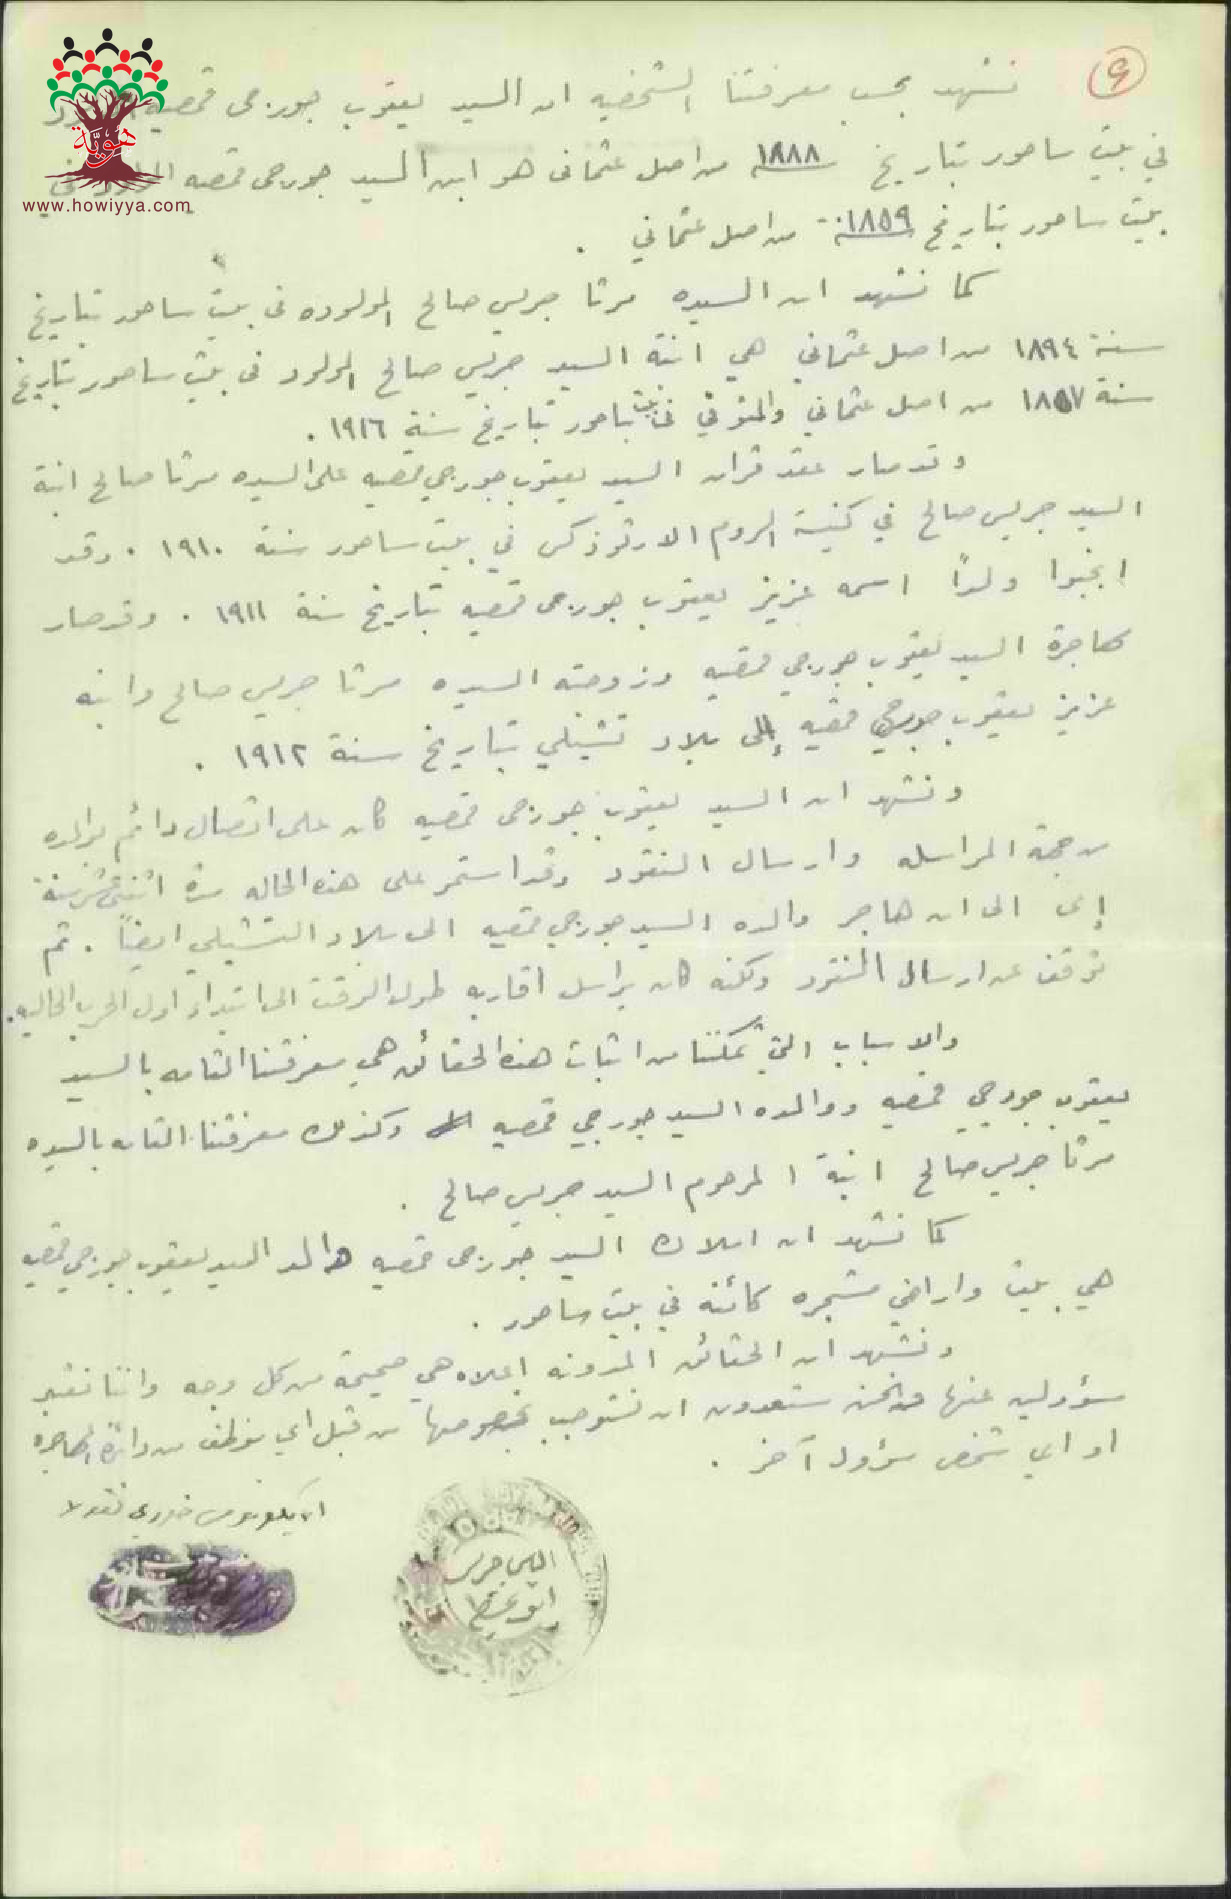 نشهد بحسب معرفتنا الشخصيه ان السيد يعقوب جورجي قمصيه
في بيت ساحور بتاريخ سنة ١٨٨٨ من اصل عثماني هو ابن السيد جورجي قمصيه المولود في
بيت ساحور بتاريخ سنة ١٨٥٩ من اصل عثماني .
كما نشهد ان السيده مرتا جريس صالح المولوده في بيت ساحور بتاريخ
سنة ١٨٩٤ من اصل عثماني هي ابنة السيد جريس صالح المولود في بيت ساحور بتاريخ
سنة ١٨٥٧ من اصل عثماني والمتوفي في بيت ساحور بتاريخ سنة ١٩١٦ .
وقد صار عقد قران السيد يعقوب جورجي قمصيه على السيده مرتا صالح ابنة
السيد جريس صالح في كنيسة الروم الارثوذكس في بيت ساحور سنة ١٩١٠ . وقد
انجبوا ولدًا اسمه عزيز يعقوب جورجي قمصيه بتاريخ سنة ١٩١١ . وقد صار
مهاجرة السيد يعقوب جورجي قمصيه وزوجته السيده مرتا جريس صالح وابنه
عزيز يعقوب جورجي قمصيه إلى بلاد تشيلي بتاريخ سنة ١٩١٢ .
ونشهد ان السيد يعقوب جورجي قمصيه كان على اتصال دائم بوالده
من جهة المراسله وارسال النقود وقد استمر على هذه الحاله مدة اثنتي عشر سنة
إلى ان هاجر والده السيد جورجي قمصيه الى بلاد التشيلي ايضاً . ثم
توقف عن ارسال النقود ولكنه كان يراسل اقاربه طول الوقت الى ابتداء اول الحرب الحاليه .
والاسباب التي تمكننا من اثبات هذه الحقائق هي معرفتنا التامه بالسيد
يعقوب جورجي قمصيه ووالده السيد جورجي قمصيه وكذلك معرفتنا التامه بالسيده
مرتا جريس صالح ابنة المرحوم السيد جريس صالح .
كما نشهد ان املاك السيد جورجي قمصيه والد السيد يعقوب جورجي قمصيه
هي بيت واراضي مشجره كائنه في بيت ساحور .
ونشهد ان الحقائق المدونه اعلاه هي صحيحة من كل وجه واننا نعتبر
مسؤولين عنها ونحن مستعدون ان نستوجب بخصوصها من قبل اي موظف من دائرة المهاجره
او اي شخص مسؤول آخر .
الايكونوموس خوري نقولا
الياس جريس
ابو عيطا
هوية
www.howiyya.com